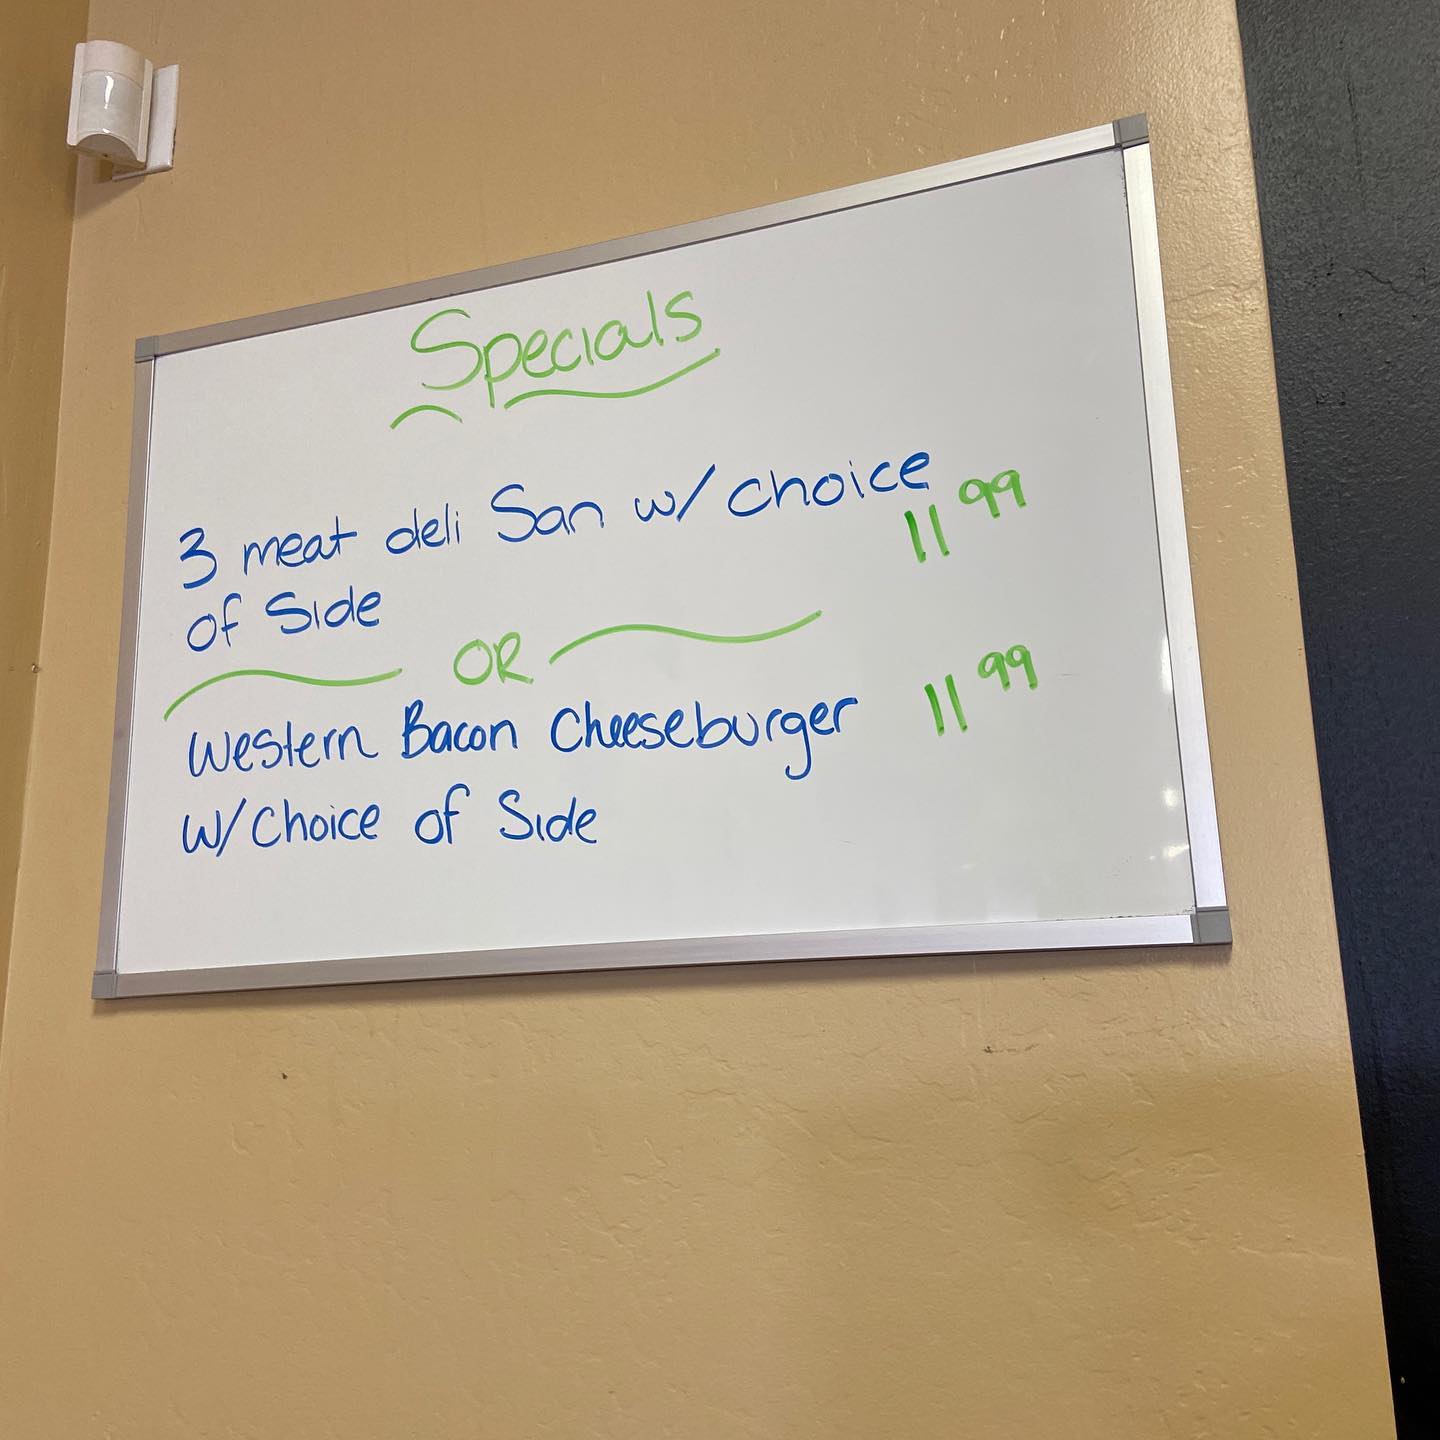 Specials
3 meat deli San w/ choice 11 99
of Side
OR
Western Bacon Cheeseburger 11 99
w/Choice of Side